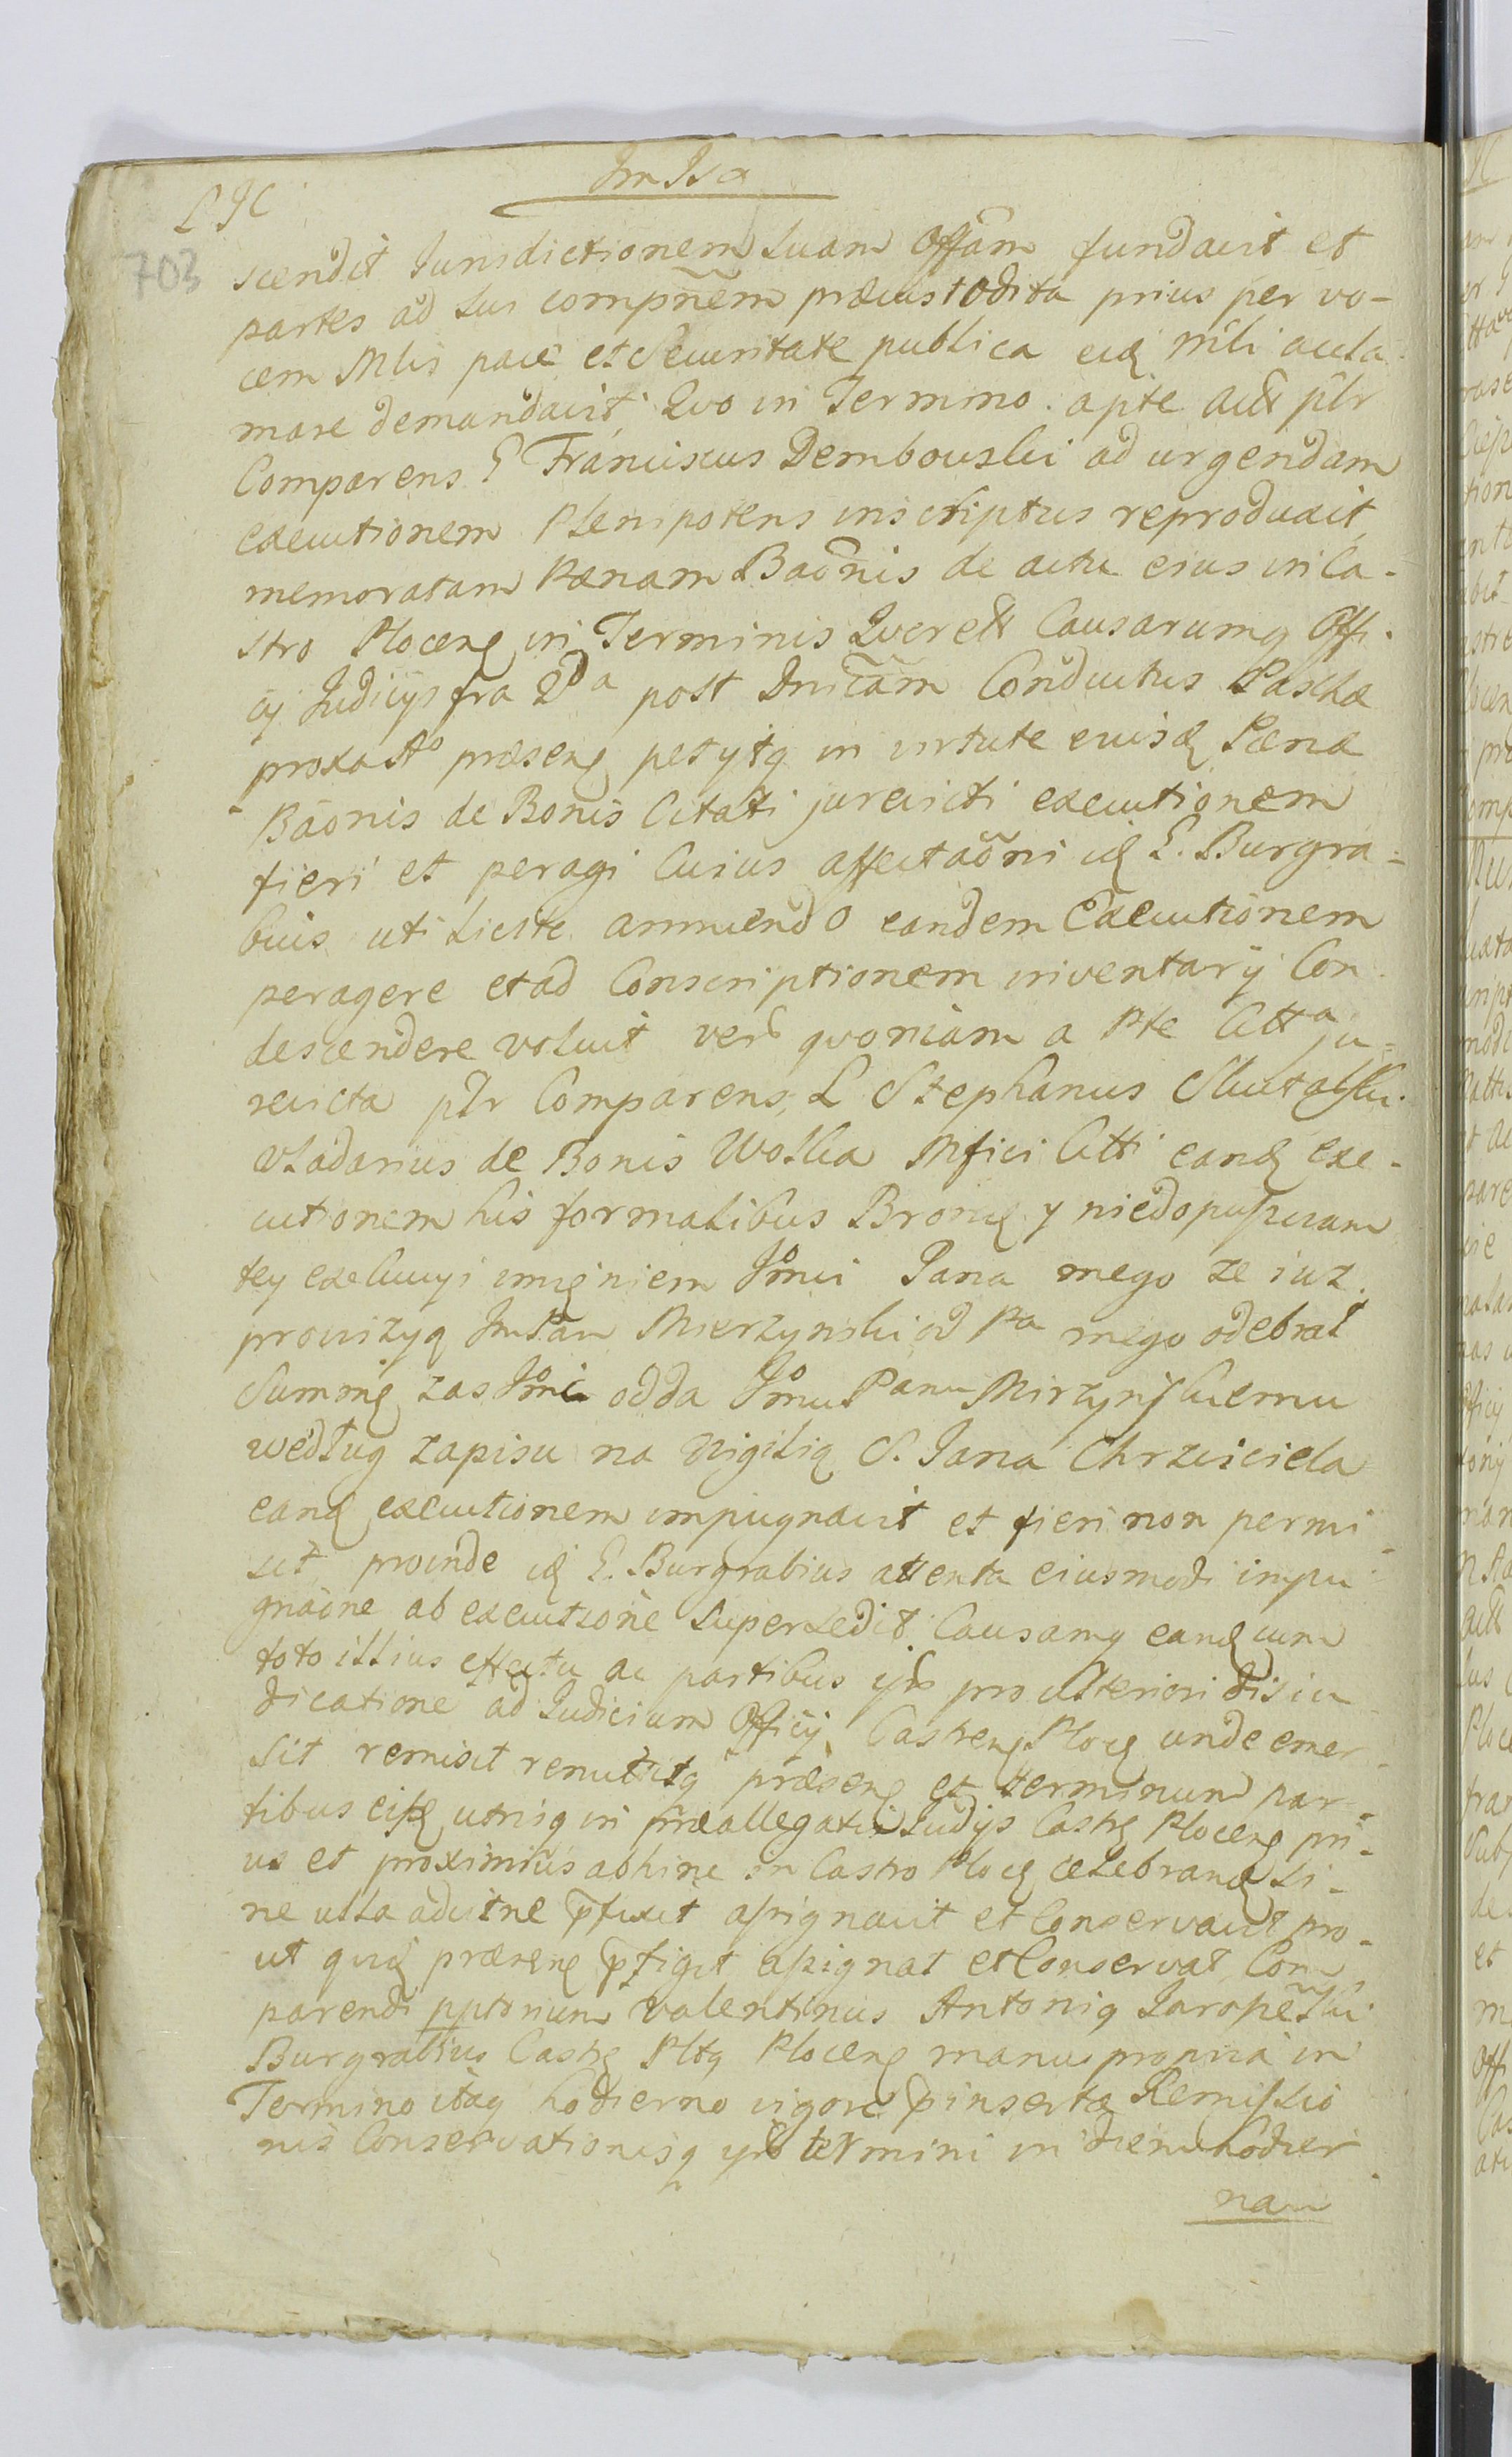 Im Isa
L JC
703
scendit Iurisdictionem suam Offam fundavit et
partes ad sui compnem præcustodita prius per vo-
cem Mlis pace et Securitate publica eidq Mli acla
mare demandavit, Quo in Termino. a pte act plr
Comparens G Franciscus Dembowski ad urgendam
executionem Plenipotens inscriptus reproduxit
memoratam Pænam Baonis de actu eius in Ca-
stro Plocenq in Terminis Querelt Causarumq Offi-
cij Judicijs fra 2da post Dnicam Conductus Paschæ
proxa Ao præsenq petijtq in virtute euisdq Pænæ
Baonis de Bonis Citati jurevicti executionem
fieri et peragi Cuius affectaoni idq G. Burgra=
bius uti licite annuendo eandem Executionem
peragere et ad Conscriptionem inventarij Con
descendere voluit vero quoniam a Pte Citta ju=
revicta plr Comparens, L Stephanus
Vladarius de Bonis Wolka Mfici Citti eandq exe-
cutionem his formalibus Bronię y niedopuszczam
tey exekucyi imięniem Jmci Pana mego ze iuz
prowizyą Jm Pan Mierzynski od Pa mego odebrał
Summę zas Jmc odda Jmu Panu Mirzynskiemu
według zapisu na Vigilią S. Jana Chrzciciela
eandq executionem impugnavit et fieri non permi
sit proinde idq G. Burgrabius attenta eiusmodi impu
gnaone ab executione supersedit Causamq eandq cum
toto illius effectu ac partibus ijs pro ulteriori disiu
dicatione ad Iudicium Officij Castrenq Plocq unde emer
sit remisit remittitq præsenq et terminum par-
tibus eisdq utrisq in præallegatis Iudijs Castrq Plocenq pri-
us et proximius abhinc in Castro Plocq celebrandq si-
ne ulla adcitne pfixit assignavit et Conservavit pro-
ut quidq præsenq pfigit assignat et Conservat Com
parendi pptorium Valentinus Antoniq
Burgrabius Castrq Pltq Plocenq manu propria in
Termino itaq hodierno vigore pinsertæ Remissio
nis Conservationisq ijs termini in diem hodier
nam